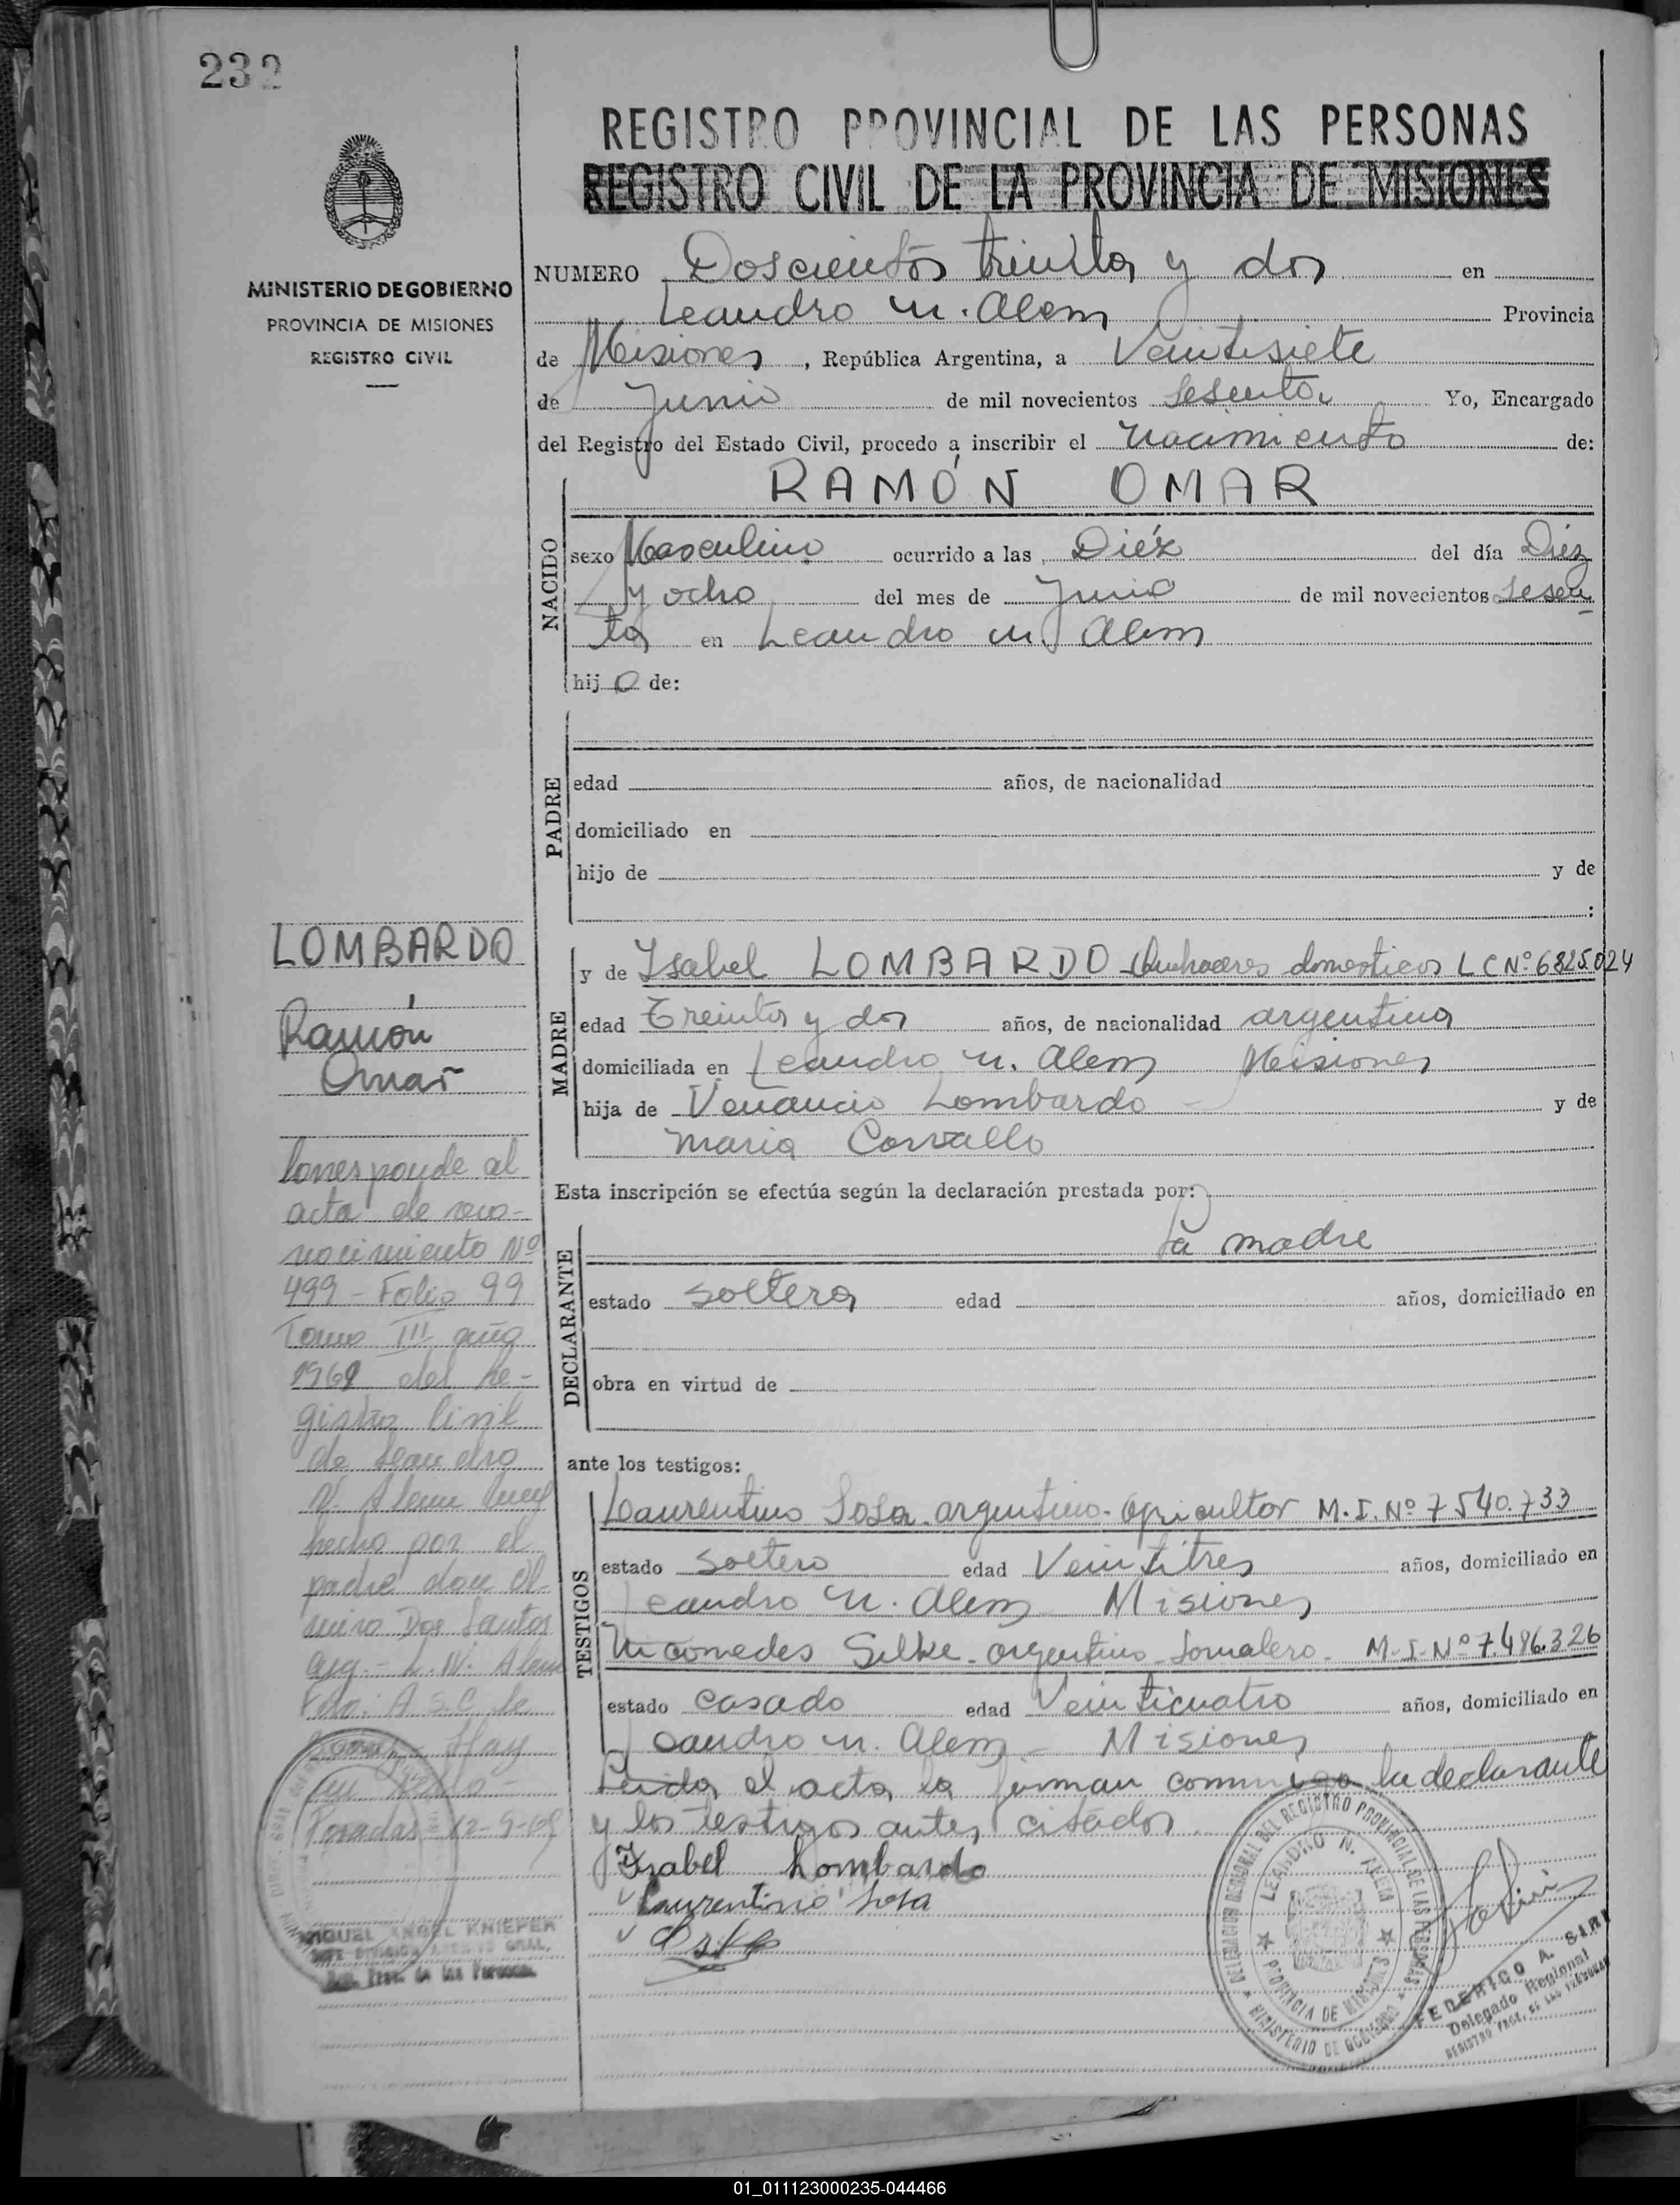 232
MINISTERIO DE GOBIERNO
PROVINCIA DE MISIONES
REGISTRO CIVIL
REGISTRO PROVINCIAL DE LAS PERSONAS
REGISTRO CIVIL DE LA PROVINCIA DE MISIONES
NUMERO Doscientos treinta y dos en
Leandro N. Alem Provincia
de Misiones, República Argentina, a Veintisiete
de Junio de mil novecientos Sesenta Yo, Encargado
del Registro del Estado Civil, procedo a inscribir el nacimiento de:
NACIDO
RAMÓN OMAR
sexo Masculino ocurrido a las Diéz del día Diez
y ocho del mes de Junio de mil novecientos Sesen
ta en Leandro N. Alem
hijo de:
PADRE
edad años, de nacionalidad
domiciliado en
hijo de y de
:
MADRE
y de Isabel LOMBARDO Quehaceres domesticos LC Nº 6825.024
edad Treinta y dos años, de nacionalidad argentina
domiciliada en Leandro N. Alem Misiones
hija de Venancio Lombardo y de
Maria Corvallo
Esta inscripción se efectúa según la declaración prestada por:
DECLARANTE
la madre
estado soltera edad años, domiciliado en
obra en virtud de
ante los testigos:
TESTIGOS
Laurentino Sosa argentino - Agricultor M.I. Nº 7540.733
estado Soltero edad Veintitres años, domiciliado en
Leandro N. Alem Misiones
Nicomedes Silke - argentino - Jornalero - M.I. Nº 7.486.326
estado Casado edad Veinticuatro años, domiciliado en
Leandro N. Alem - Misiones
Leida el acta la firman conmigo la declarante
y los testigos antes citados.
Isabel Lombardo
Laurentino Sosa
LOMBARDO
Ramón
Omar
Corresponde al
acta de reco-
nocimiento Nº
499 - Folio 99
Tomo III año
1969 del Re-
gistro Civil
de Leandro
N. Alem
hecho por el
padre don Al-
miro Dos Santos
arg. - L. N. Alem
Fdo: A. S. C. de
Hay
un sello -
Posadas 12-9-69
MIGUEL ANGEL KNIEPER
JEFE DIVISION ARCHIVO GRAL.
Reg. Prov. de las Personas
DELEGACION REGIONAL DEL REGISTRO PROVINCIAL DE LAS PERSONAS
LEANDRO N. ALEM
PROVINCIA DE MISIONES
MINISTERIO DE GOBIERNO
FEDERICO A. SIRI
Delegado Regional
REGISTRO PROV. DE LAS PERSONAS
01_011123000235-044466